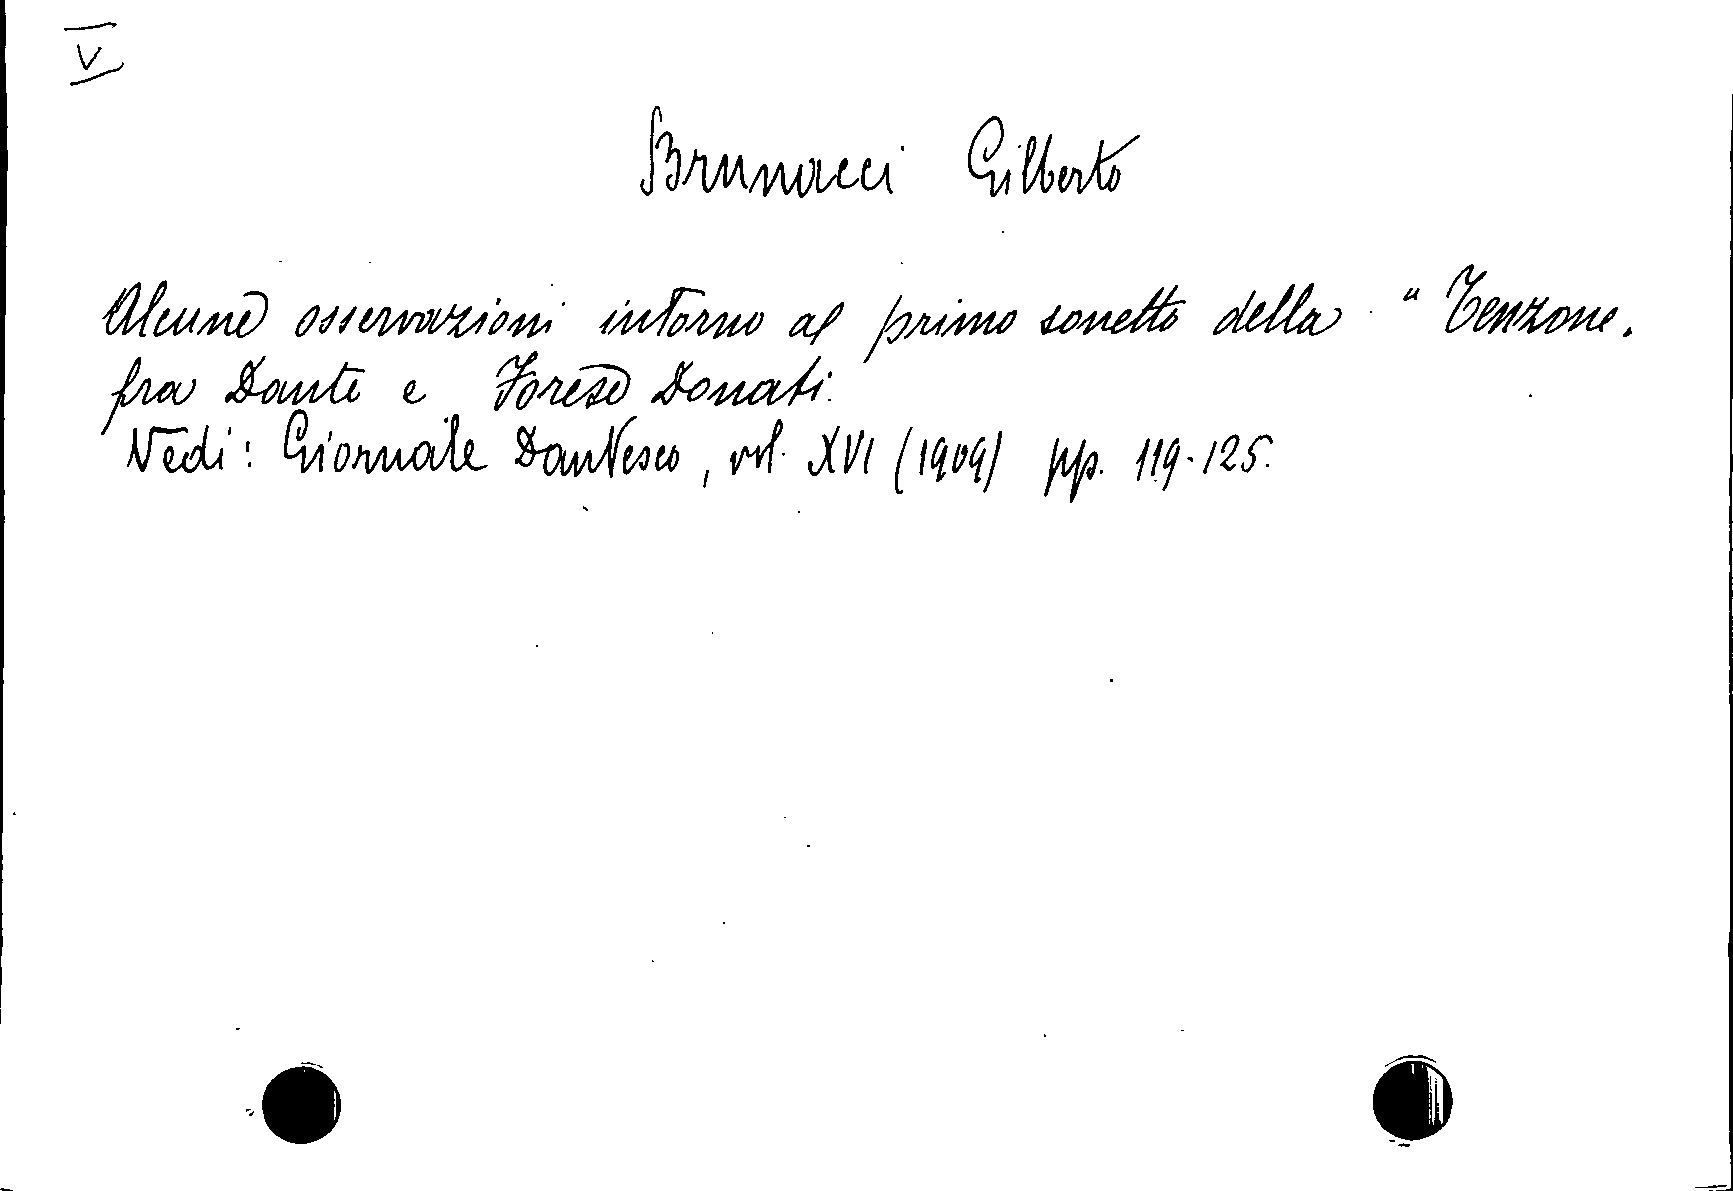 V
Brunacci Gilberto
Alcune osservazioni intorno al primo sonetto della "Tenzone.
fra Dante e Forese Donati.
Vedi: Giornale Dantesco, vol. XVI (1909) pp. 119-125.